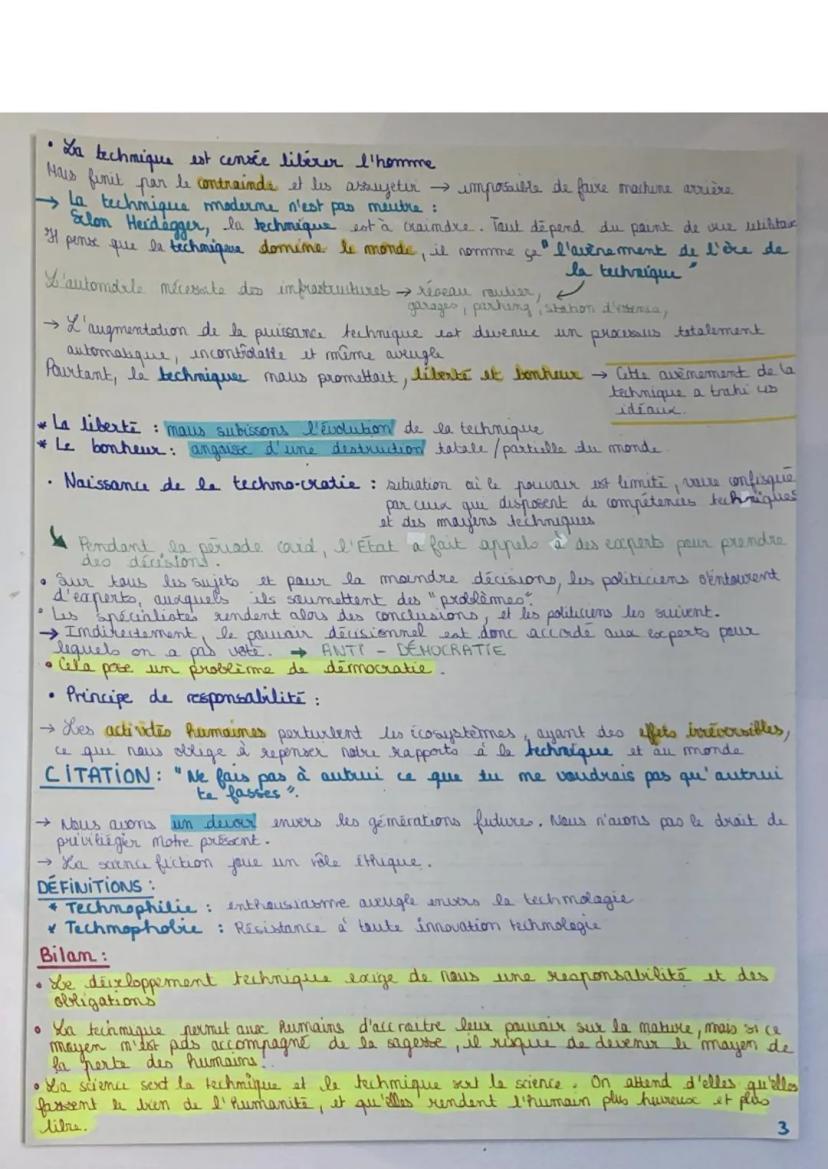 • La technique est censée libérer l'homme
Mais finit par le contraindre et les assujetir → impossible de faire machine arrière
→ La technique moderne n'est pas neutre :
Selon Heidegger, la technique est à craindre. Tout dépend du point de vue
Il pense que la technique domine le monde, il nomme ça "l'avènement de l'ère de
la technique"
L'automobile nécessite des infrastructures → réseau routier,
garages, parking, station d'essence,
→ L'augmentation de la puissance technique est devenue un processus totalement
automatique, incontrôlable et même aveugle
Pourtant, la technique nous promettait, liberté et bonheur → Cette avènement de la
technique a trahi ces
idéaux.
* La liberté : nous subissons l'évolution de la technique
* Le bonheur : angoisse d'une destruction totale / partielle du monde
• Naissance de la techno-cratie : situation où le pouvoir est limité, voire confisqué
par ceux que disposent de compétences techniques
et des moyens techniques
Pendant la période covid, l'État a fait appels à des experts pour prendre
des décisions.
• Sur tous les sujets et pour la moindre décisions, les politiciens s'entourent
d'experts, auxquels ils soumettent des "problèmes".
• Les spécialistes rendent alors des conclusions, et les politiciens les suivent.
→ Indirectement, le pouvoir décisionnel est donc accordé aux experts pour
lequels on a pas voté. → ANTI - DÉMOCRATIE
• Cela pose un problème de démocratie.
• Principe de responsabilité :
→ Les activités humaines perturbent les écosystèmes, ayant des effets irréversibles,
ce que nous oblige à repenser notre rapports à la technique et au monde
CITATION : "Ne fais pas à autrui ce que tu ne voudrais pas qu'autrui
te fasses".
→ Nous avons un devoir envers les générations future. Nous n'avons pas le droit de
privilégier notre présent.
→ La science fiction joue un rôle éthique.
DÉFINITIONS :
* Technophilie : enthousiasme aveugle envers la technologie
* Technophobie : Résistance à toute innovation technologie
Bilan :
• Le développement technique exige de nous une responsabilité et des
obligations
• La technique permet aux humains d'accroitre leur pouvoir sur la nature, mais si ce
moyen n'est pas accompagné de la sagesse, il risque de devenir le moyen de
la perte des humains.
• La science sert la technique et la technique sert la science. On attend d'elles qu'elles
fassent le bien de l'humanité, et qu'elles rendent l'humain plus heureux et plus
libre.
3